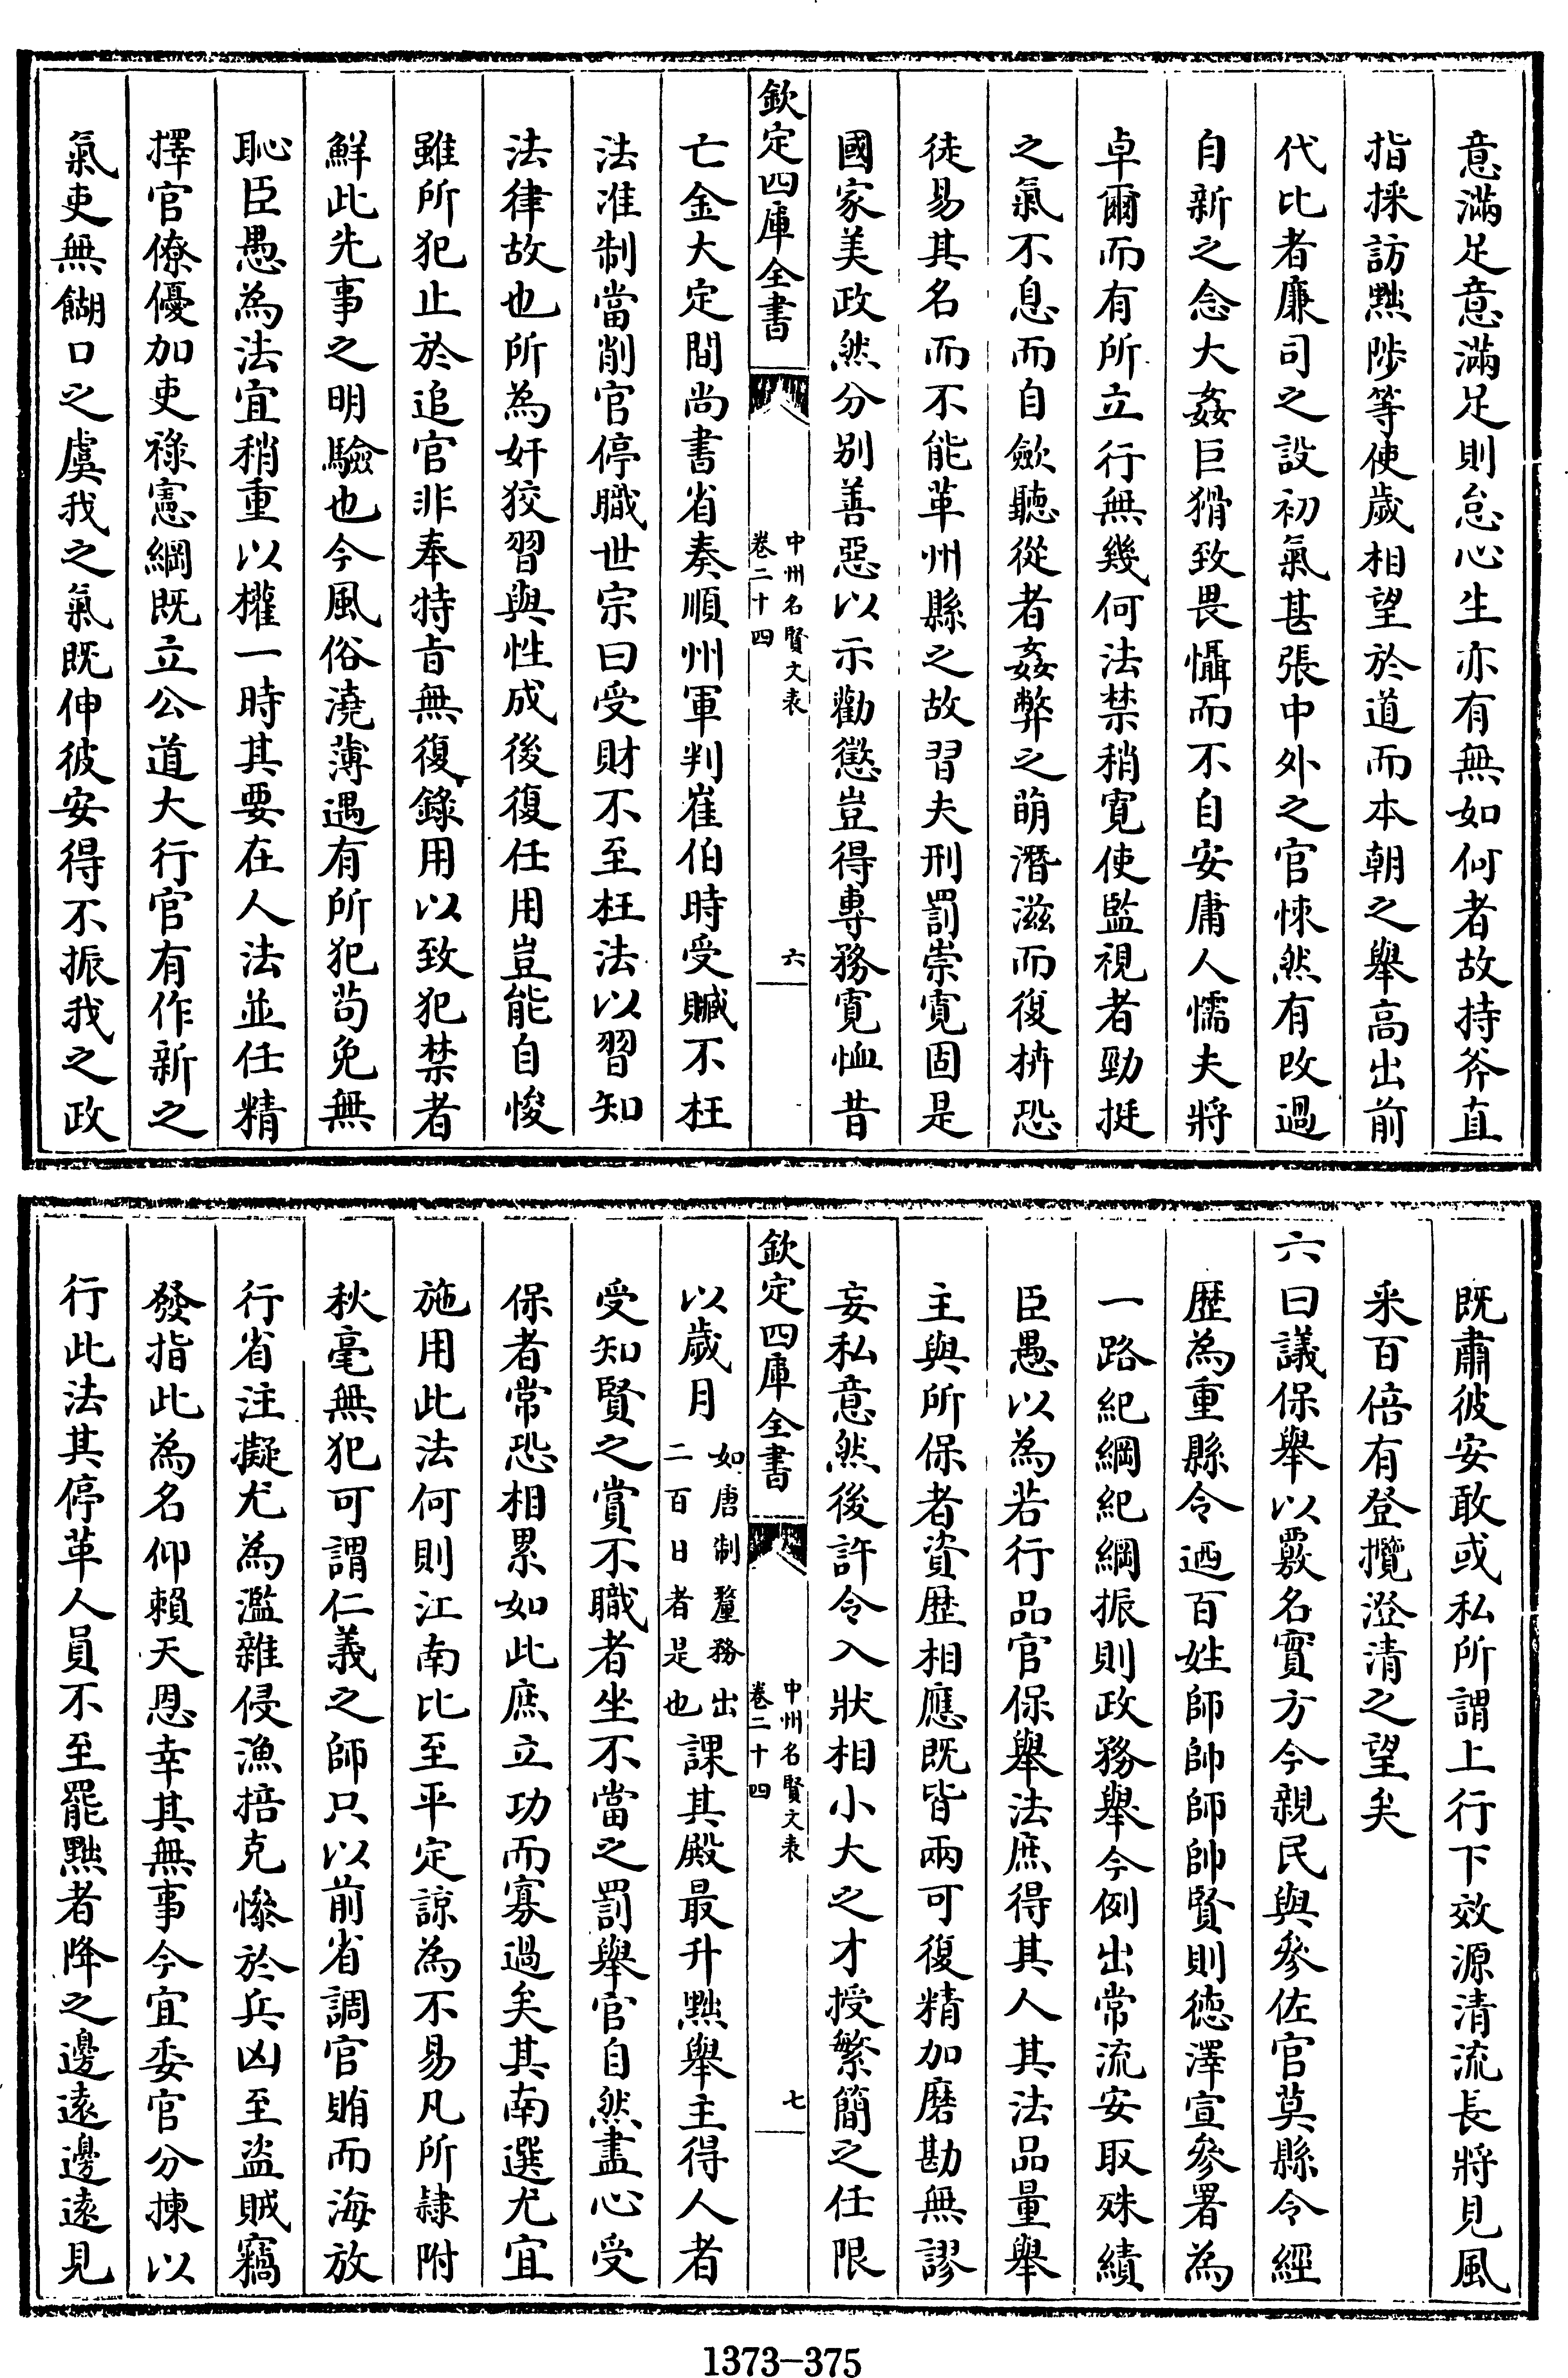 意滿足意滿足則怠心生亦有無如何者故持斧直
指採訪黜陟等使歲相望於道而本朝之舉高出前
代比者廉司之設初氣甚張中外之官悚然有改過
自新之念大姦巨猾致畏懾而不自安庸人懦夫將
卓爾而有所立行無幾何法禁稍寛使監視者勁挺
之氣不息而自歛聽從者姦弊之萌潛滋而復枿恐
徒易其名而不能革州縣之故習夫刑罰崇寛固是
國家美政然分别善惡以示勸懲豈得專務寛恤昔
欽定四庫全書
中州名賢文表
卷二十四
六
亡金大定間尚書省奏順州軍判崔伯時受贓不枉
法准制當削官停職世宗曰受財不至枉法以習知
法律故也所為奸狡習與性成後復任用豈能自悛
雖所犯止於追官非奉特旨無復錄用以致犯禁者
鮮此先事之明驗也今風俗澆薄遇有所犯苟免無
恥臣愚為法宜稍重以權一時其要在人法並任精
擇官僚優加吏祿憲綱既立公道大行官有作新之
氣吏無餬口之虞我之氣既伸彼安得不振我之政
既肅彼安敢或私所謂上行下效源清流長將見風
采百倍有登攬澄清之望矣
六曰議保舉以覈名實方今親民與參佐官莫縣令經
歴為重縣令迺百姓師帥師帥賢則徳澤宣參署為
一路紀綱紀綱振則政務舉今例出常流安取殊績
臣愚以為若行品官保舉法庶得其人其法品量舉
主與所保者資歴相應既皆兩可復精加磨勘無謬
妄私意然後許令入狀相小大之才授繁簡之任限
欽定四庫全書
中州名賢文表
卷二十四
七
以歲月如唐制釐務出二百日者是也課其殿最升黜舉主得人者
受知賢之賞不職者坐不當之罰舉官自然盡心受
保者常恐相累如此庶立功而寡過矣其南選尤宜
施用此法何則江南比至平定諒為不易凡所隸附
秋毫無犯可謂仁義之師只以前省調官賄而海放
行省注擬尤為濫雜侵漁掊克慘於兵凶至盜賊竊
發指此為名仰賴天恩幸其無事今宜委官分揀以
行此法其停革人員不至罷黜者降之邊遠邊遠見
1373-375